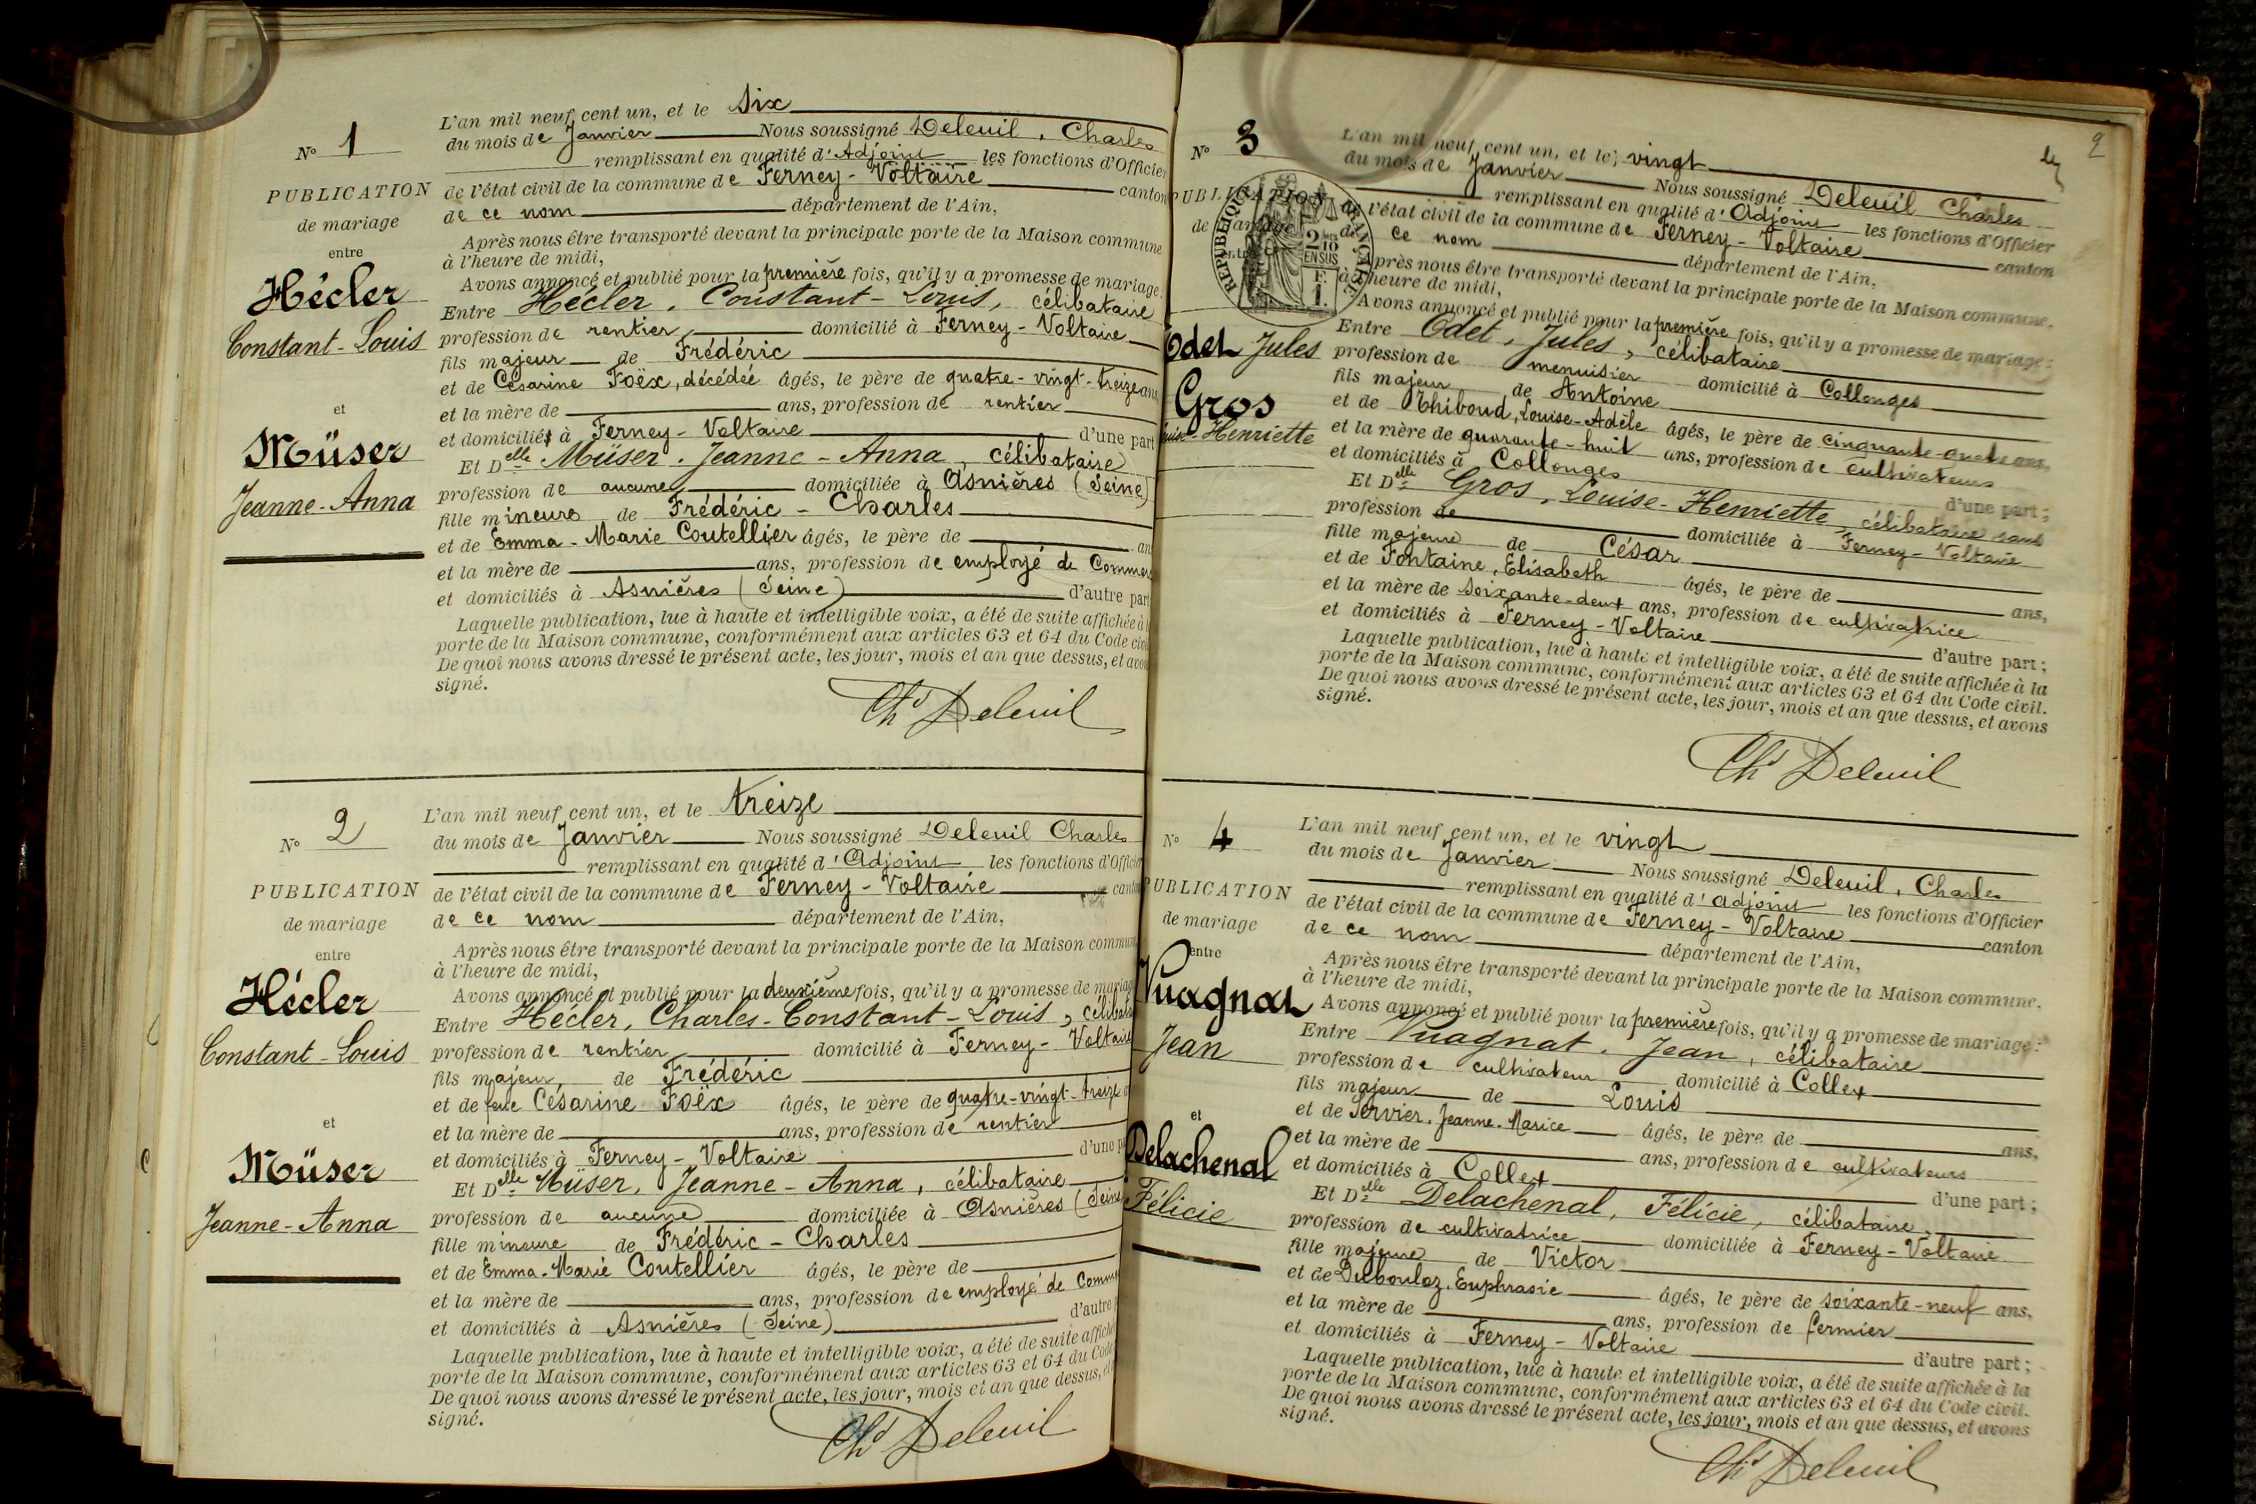 L'an mil neuf cent un, et le Six
N° 1
du mois de Janvier Nous soussigné Deleuil, Charles
remplissant en qualité d'Adjoint les fonctions d'Officier
PUBLICATION
de l'état civil de la commune de Ferney-Voltaire canton
de mariage
de ce nom département de l'Ain,
entre
Après nous être transporté devant la principale porte de la Maison commune
à l'heure de midi,
Avons annoncé et publié pour la première fois, qu'il y a promesse de mariage.
Hécler
Constant-Louis
Entre Hécler, Constant-Louis, célibataire
profession de rentier, domicilié à Ferney-Voltaire
fils majeur de Frédéric
et de Césarine Foëx, décédée âgés, le père de quatre-vingt-treize ans
et
et la mère de ans, profession de rentier
et domiciliés à Ferney-Voltaire d'une part
Müser
Jeanne-Anna
Et Delle Müser, Jeanne-Anna, célibataire
profession de aucune domiciliée à Asnières (Seine)
fille mineure de Frédéric-Charles
et de Emma-Marie Coutellier âgés, le père de an
et la mère de ans, profession de employé de Commer
et domiciliés à Asnières (Seine) d'autre part
Laquelle publication, lue à haute et intelligible voix, a été de suite affichée à
porte de la Maison commune, conformément aux articles 63 et 64 du Code civ
De quoi nous avons dressé le présent acte, les jour, mois et an que dessus, et avon
signé.
Chd Deleuil
L'an mil neuf cent un, et le treize
N° 2
du mois de Janvier Nous soussigné Deleuil Charles
remplissant en qualité d'Adjoint les fonctions d'Officier
PUBLICATION
de l'état civil de la commune de Ferney-Voltaire canton
de mariage
de ce nom département de l'Ain,
entre
Après nous être transporté devant la principale porte de la Maison commun
à l'heure de midi,
Avons annoncé et publié pour la deuxième fois, qu'il y a promesse de mariag
Hécler
Constant-Louis
Entre Hécler, Charles-Constant-Louis, céliba
profession de rentier domicilié à Ferney-Voltaire
fils majeur, de Frédéric
et de feue Césarine Foëx âgés, le père de quatre-vingt-treize
et
et la mère de ans, profession de rentier
et domiciliés à Ferney-Voltaire d'une p
Müser
Jeanne-Anna
Et Delle Müser, Jeanne-Anna, célibataire
profession de aucune domiciliée à Asnières (Seine
fille mineure de Frédéric-Charles
et de Emma-Marie Coutellier âgés, le père de
et la mère de ans, profession de employé de Comme
et domiciliés à Asnières (Seine) d'autre
Laquelle publication, lue à haute et intelligible voix, a été de suite affiché
porte de la Maison commune, conformément aux articles 63 et 64 du Code
De quoi nous avons dressé le présent acte, les jour, mois et an que dessus, et
signé.
Chd Deleuil
2
N° 3
L'an mil neuf cent un, et le vingt
du mois de Janvier Nous soussigné Deleuil Charles
remplissant en qualité d'Adjoint les fonctions d'Officier
PUBLICATION
de mariage
entre
REPUBLIQUE FRANÇAISE
2/10
EN SUS
F.
1.
l'état civil de la commune de Ferney-Voltaire canton
de ce nom département de l'Ain,
Après nous être transporté devant la principale porte de la Maison commune,
à l'heure de midi,
Avons annoncé et publié pour la première fois, qu'il y a promesse de mariage:
Odet Jules
Entre Odet, Jules, célibataire
profession de menuisier domicilié à Collonges
Gros
Louise-Henriette
fils majeur de Antoine
et de Thiboud, Louise-Adèle âgés, le père de cinquante-quatre ans,
et la mère de quarante-huit ans, profession de cultivateurs
et domiciliés à Collonges d'une part;
Et Delle Gros, Louise-Henriette, célibataire sans
profession de domiciliée à Ferney-Voltaire
fille majeure de César
et de Fontaine, Elisabeth âgés, le père de ans,
et la mère de soixante-deux ans, profession de cultivatrice
et domiciliés à Ferney-Voltaire d'autre part;
Laquelle publication, lue à haute et intelligible voix, a été de suite affichée à la
porte de la Maison commune, conformément aux articles 63 et 64 du Code civil.
De quoi nous avons dressé le présent acte, les jour, mois et an que dessus, et avons
signé.
Chd Deleuil
N° 4
L'an mil neuf cent un, et le vingt
du mois de Janvier Nous soussigné Deleuil, Charles
remplissant en qualité d'adjoint les fonctions d'Officier
PUBLICATION
de l'état civil de la commune de Ferney-Voltaire canton
de mariage
de ce nom département de l'Ain,
entre
Après nous être transporté devant la principale porte de la Maison commune.
à l'heure de midi,
Avons annoncé et publié pour la première fois, qu'il y a promesse de mariage:
Vuagnat
Jean
Entre Vuagnat, Jean, célibataire
profession de cultivateur domicilié à Collex
fils majeur de Louis
et de Servier, Jeanne-Marice âgés, le père de ans,
et
et la mère de ans, profession de cultivateurs
et domiciliés à Collex d'une part;
Delachenal
Félicie
Et Delle Delachenal, Félicie, célibataire
profession de cultivatrice domiciliée à Ferney-Voltaire
fille majeure de Victor
et de Dubouloz, Euphrasie âgés, le père de soixante-neuf ans,
et la mère de ans, profession de fermier
et domiciliés à Ferney-Voltaire d'autre part;
Laquelle publication, lue à haute et intelligible voix, a été de suite affichée à la
porte de la Maison commune, conformément aux articles 63 et 64 du Code civil.
De quoi nous avons dressé le présent acte, les jour, mois et an que dessus, et avons
signé.
Chd Deleuil